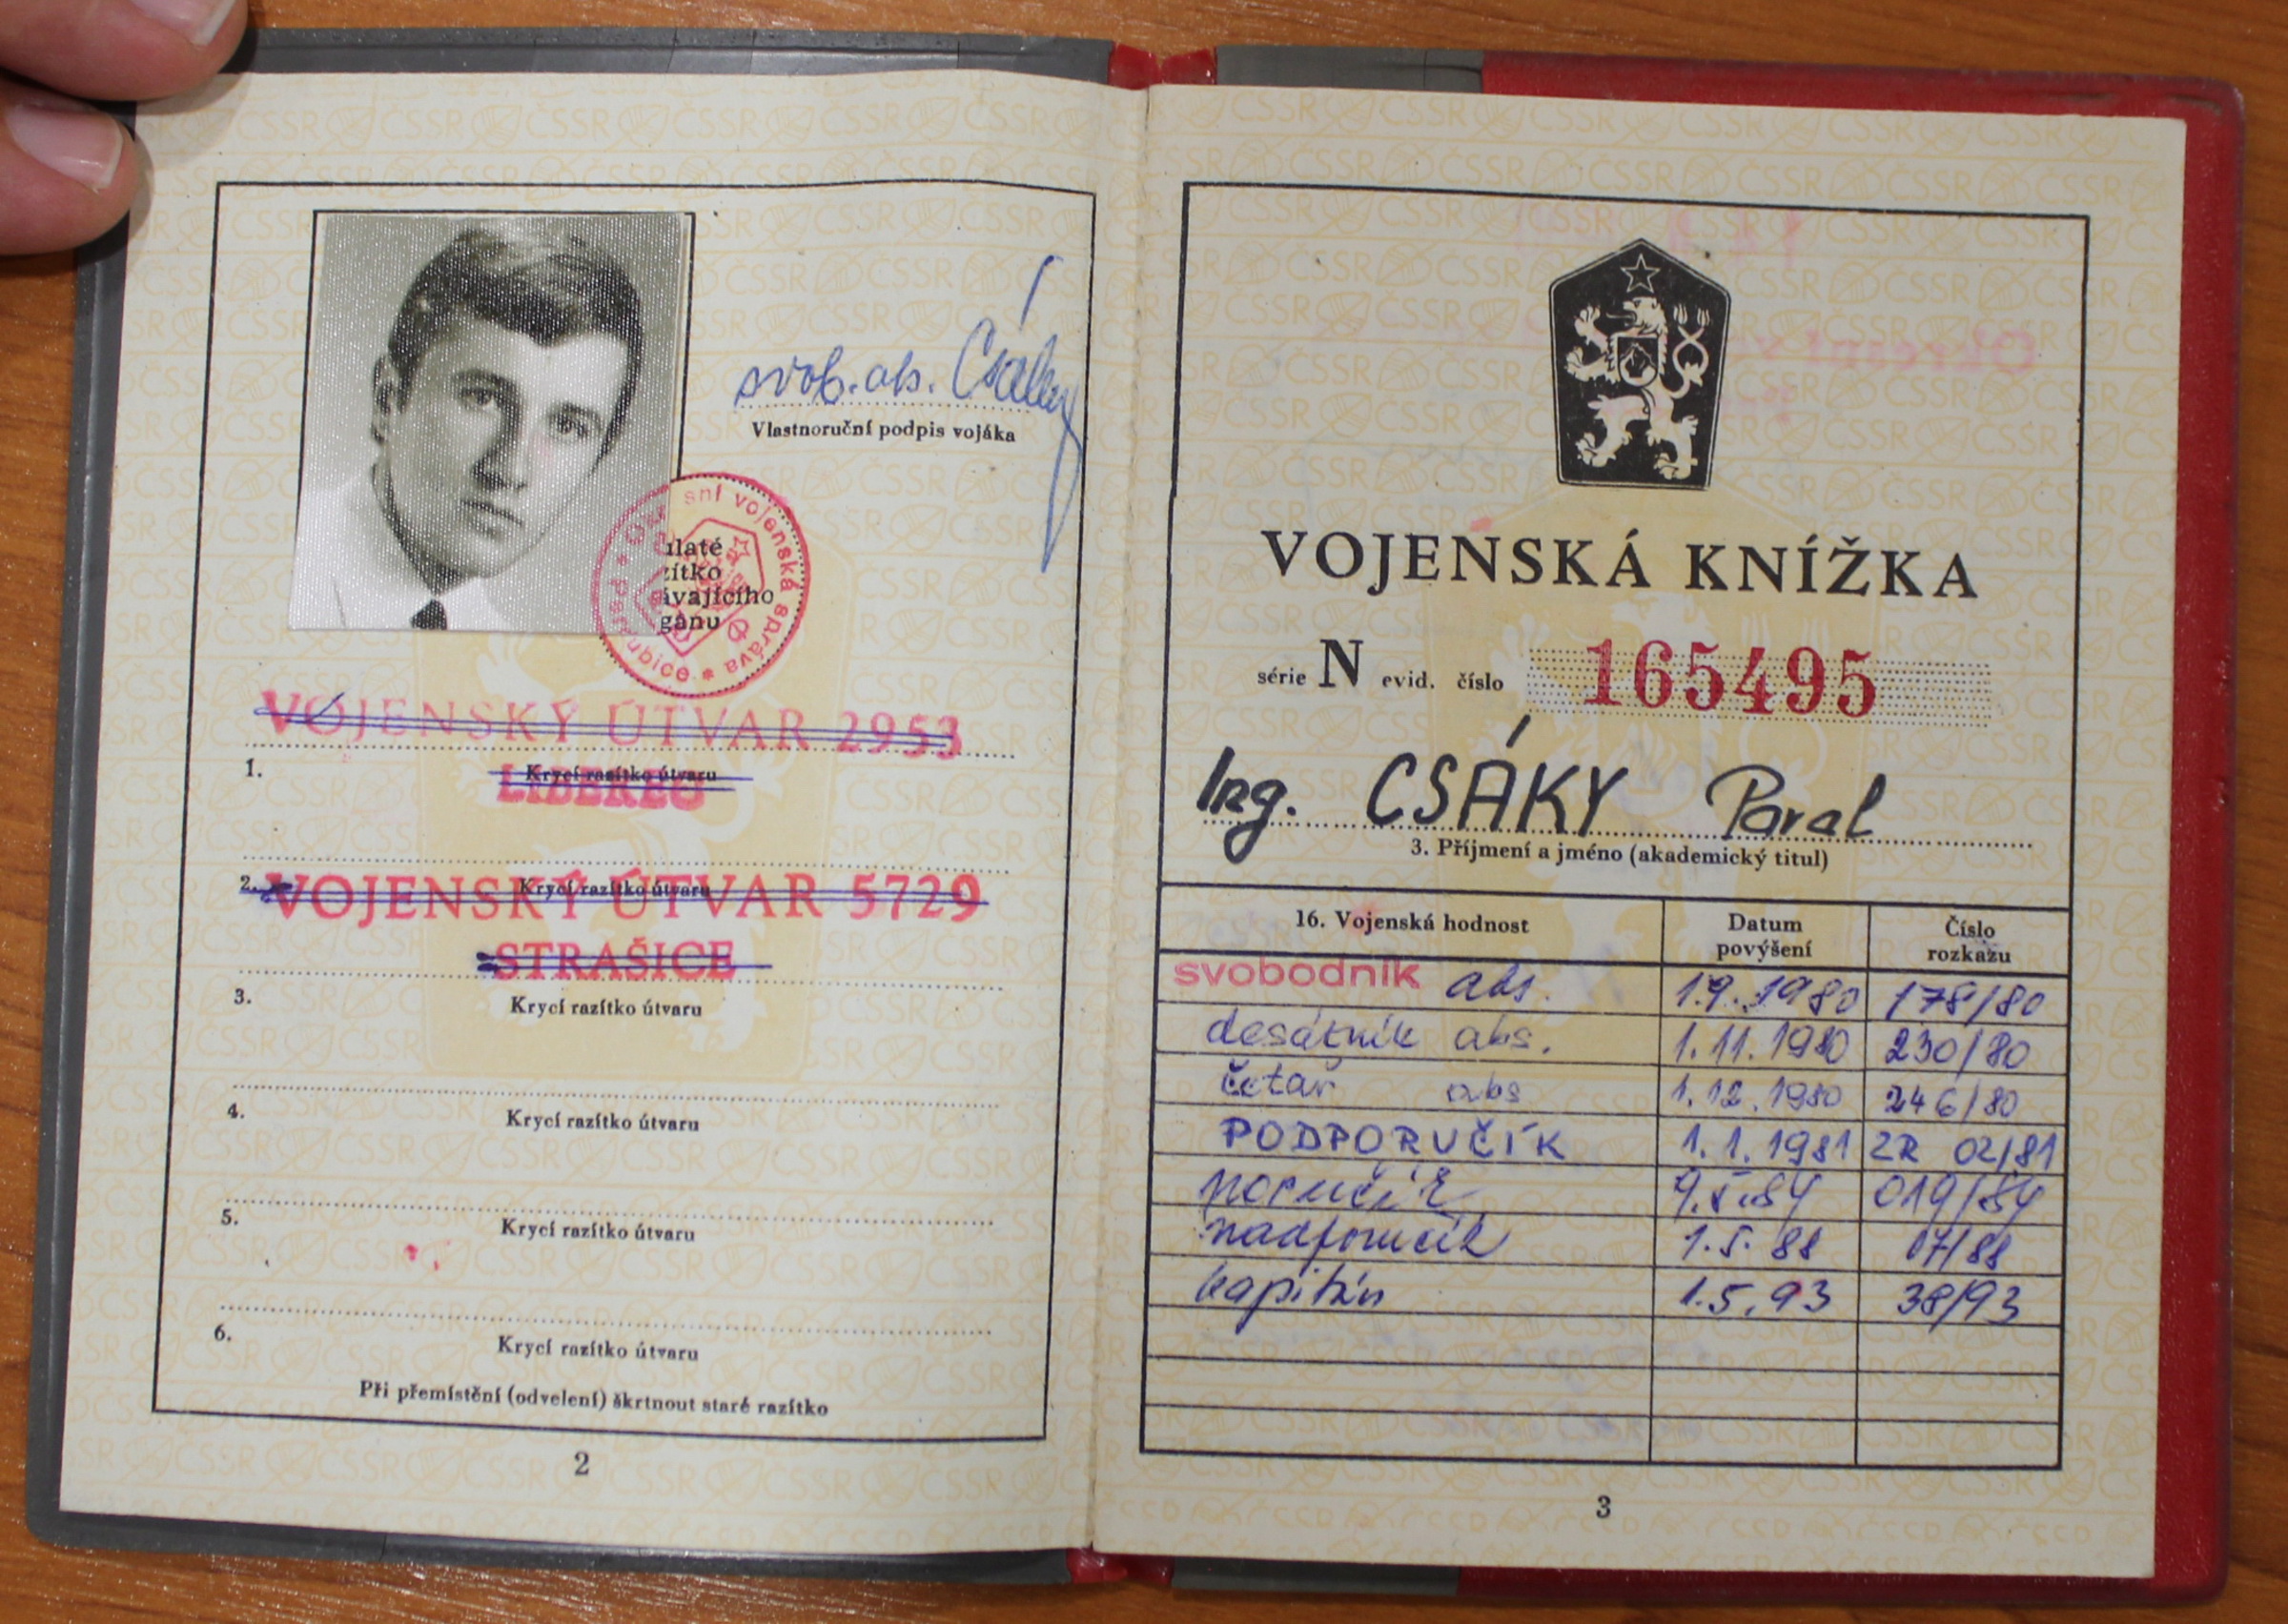 svob. ab. Csáky
Vlastnoruční podpis vojáka
Okresní vojenská správa * Pardubice *
ulaté
zítko
ávajícího
gánu
VOJENSKÝ ÚTVAR 2953
1.
Krycí razítko útvaru
LIBEREC
2.
Krycí razítko útvaru
VOJENSKÝ ÚTVAR 5729
STRAŠICE
3.
Krycí razítko útvaru
4.
Krycí razítko útvaru
5.
Krycí razítko útvaru
6.
Krycí razítko útvaru
Při přemístění (odvelení) škrtnout staré razítko
2
VOJENSKÁ KNÍŽKA
série N evid. číslo 165495
Ing. CSÁKY Pavel
3. Příjmení a jméno (akademický titul)
16. Vojenská hodnost Datum povýšení Číslo rozkazu
svobodník abs. 1.9.1980 178/80
desátník abs. 1.11.1980 230/80
četař abs 1.12.1980 246/80
PODPORUČÍK 1.1.1981 ZR 02/81
poručík 9.5.84 019/84
nadporučík 1.5.88 07/88
kapitán 1.5.93 38/93
3